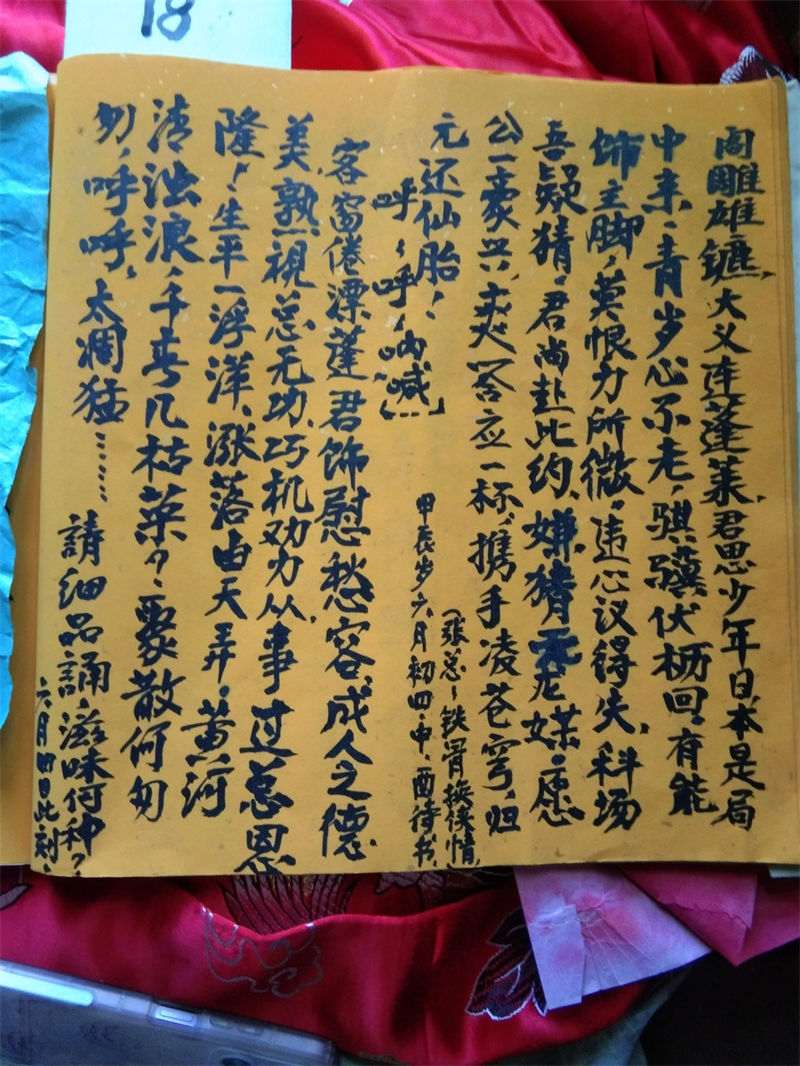 18
向雕雄镳，大义连蓬莱，君思少年日，本是局
中来，青岁心不老，骐骥伏枥回，有能
饰主脚，莫恨力所微，违心议得失，科场
喜疑猜，君尚赴此约，嫌猜无龙媒。愿
公一豪兴，爽答应一杯，携手凌苍穹，归
元还仙胎！
呼～呼！呐喊〕
(张总～铁骨换侠情，
甲辰岁六月初四、中、酉待书、
客窗倦漂蓬，君饰慰愁容，成人之德
美，熟視总无功，巧机劝力从，事过蒽恩
隆！生平一浮洋，涨落由天弄。黄河
清浊浪，千春几枯荣？聚散何匆
匆，呼呼，太凋猛……
請细品誦，滋味何种？
六月四日此刻、